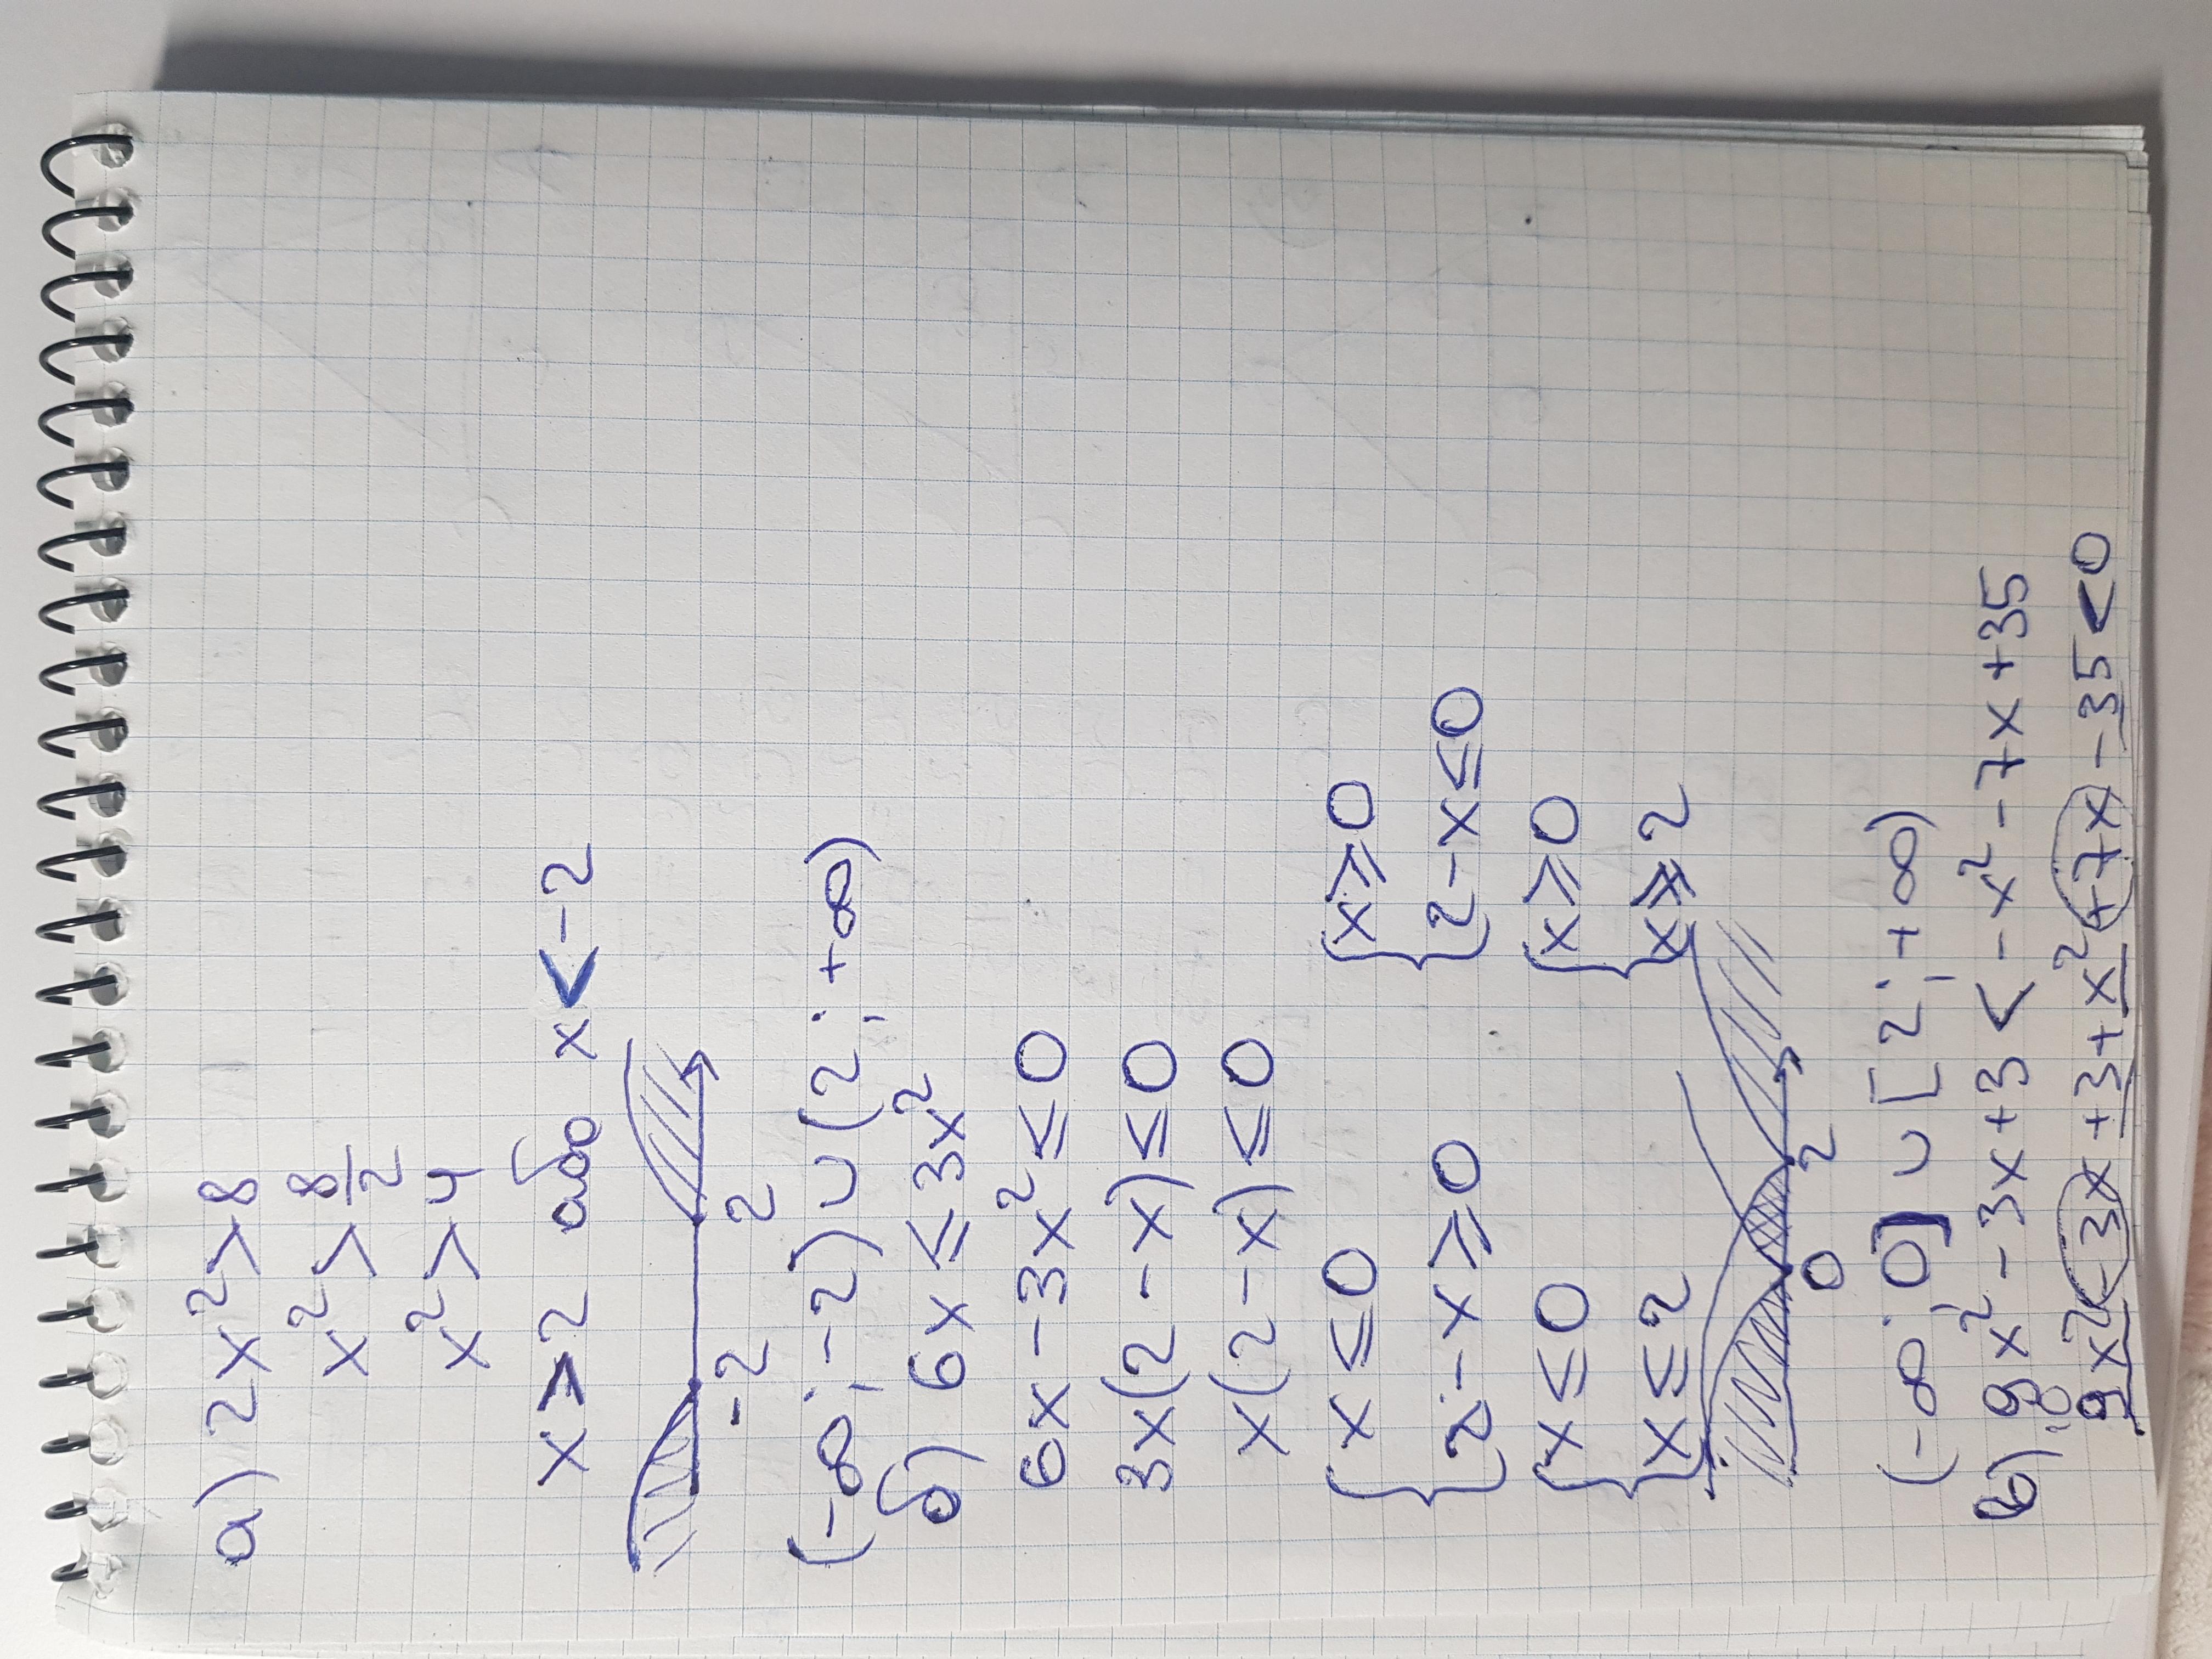 а) 2x²>8
x²>8/2
x²>4
x>2 або x<-2
-2 2
(-∞;-2)∪(2;+∞)
б) 6x≤3x²
6x-3x²≤0
3x(2-x)≤0
x(2-x)≤0
{x≤0 {x≥0
2-x≥0 2-x≤0
{x≤0 {x≥0
x≤2 x≥2
0 2
(-∞;0]∪[2;+∞)
в) 9x²-3x+3<-x²-7x+35
9x²-3x+3+x²+7x-35<0